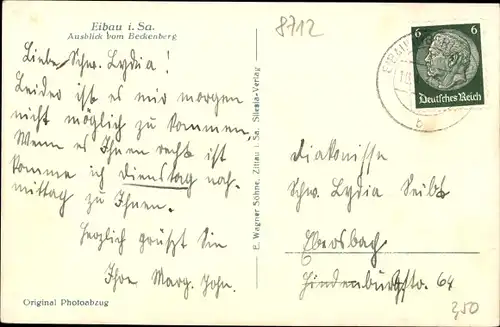 Eibau i. Sa.
Ausblick vom Beckenberg
8712
Liebe Schw. Lydia!
Leider ist es mir morgen
nicht möglich zu kommen,
Wenn es Ihnen recht ist
komme ich dienstag nach-
mittag zu Ihnen.
Herzlich grüßt Sie
Ihre Marg. John.
Original Photoabzug
E. Wagner Söhne, Zittau i. Sa., Silesia-Verlag
6 6
Deutsches Reich
EIBAU
b
Diakonisse
Schw. Lydia Seibt
Ebersbach
Hindenburgstr. 64
2,50